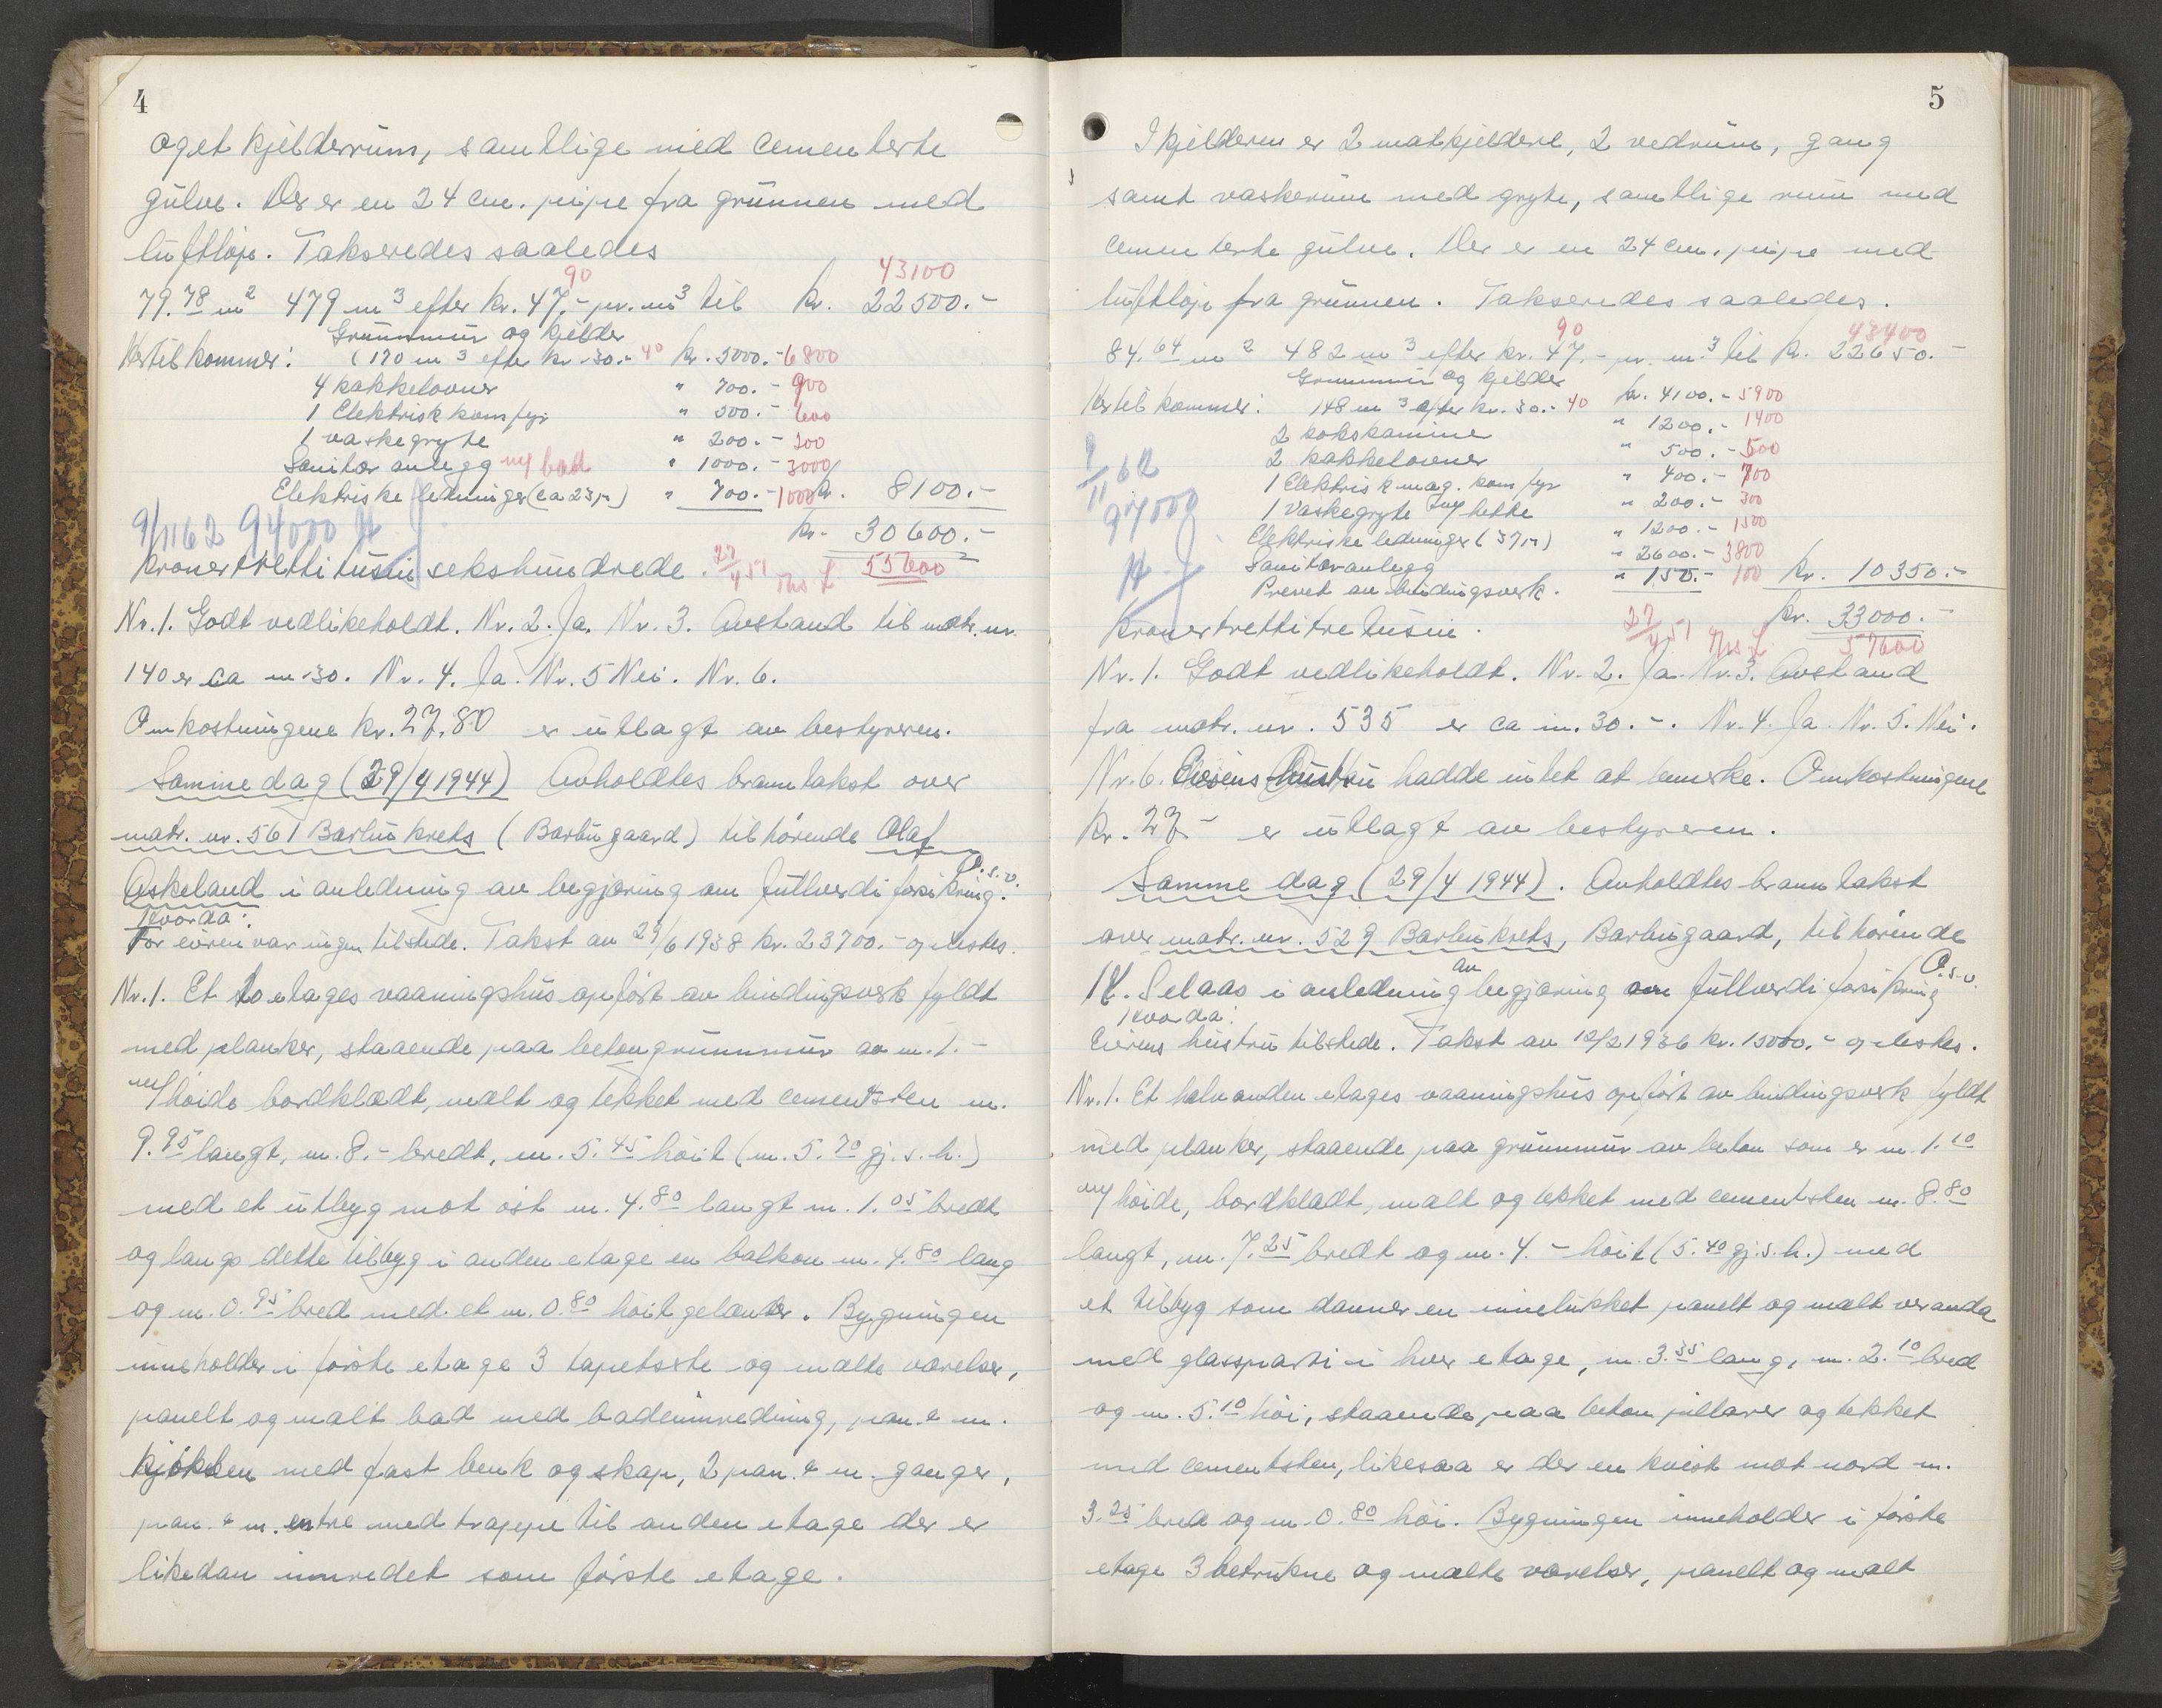 4
og et kjelderrum, samtlige med cementerte
gulve. Der er en 24 cm. pipe fra grunnen med
luftlöp. Takseredes saaledes
90 43100
79.78 m2 479 m3 efter kr. 47,- pr. m3 til kr. 22500.-
Grunnmur og kjelder
Hertil kommer: (170 m3 efter kr. 30.- 40 kr. 5000.- 6800
4 kakkelovner " 700.- 900
1 Elektrisk komfyr " 500.- 600
1 vaskegryte " 200.- 300
Sanitær anlegg m/ bad " 1000.- 3000
Elektriske ledninger (ca 23,-) " 700.- 1000 kr. 8100.-
kr. 30600.-
9/11 62 94000
Kroner trettitusen sekshundrede. 27/4 51 55600
Nr. 1. Godt vedlikeholdt. Nr. 2. Ja. Nr. 3. Avstand til matr. nr.
140 er ca m 30. Nr. 4. Ja. Nr. 5 Nei. Nr. 6.
Omkostningene kr. 27,80 er utlagt av bestyreren.
Samme dag (29/4 1944) Avholdtes branntakst over
matr. nr. 561 Barbu krets (Barbugaard) tilhörende Olaf
Askeland i anledning av begjæring om fullverdi forsikring. O.s.v.
Hvorda:
For eieren var ingen tilstede. Takst av 29/6 1938 kr. 23700.- oplestes.
Nr. 1. Et to etages vaaningshus opfört av bindingsverk fyldt
med planker, staaende paa betongrunnmur av m. 1.-
m/ höide bordklædt, malt og tekket med cementsten m.
9.95 langt, m. 8.- bredt, m. 5.45 höit (m. 5.70 gj. s. h.)
med et utbyg mot öst m. 4.80 langt m. 1.05 bredt
og langs dette tilbyg i anden etage en balkon m. 4.80 lang
og m. 0.95 bred med et m. 0.80 höit gelænder. Bygningen
inneholder i förste etage 3 tapetserte og malte værelser,
panelt og malt bad med badeinnredning, pan. & m.
kjökken med fast benk og skap, 2 pan. & m. ganger,
pan. & m. entre med trappe til anden etage der er
likedan innredet som förste etage.
5
I kjelderen er 2 matkjeldere, 2 vedrum, gang
samt vaskerum med gryte, samtlige rum med
cementerte gulve. Der er en 24 cm. pipe med
luftlöp fra grunnen. Takseredes saaledes.
90 43400
84.64 m2 482 m3 efter kr. 47.- pr. m.3 til kr. 22650.-
Grunnmur og kjelder
Hertil kommer: 148 m3 efter kr. 30.- 40 kr. 4100.- 5900
2 kokskaminer " 1200.- 1400
2 kakkelovner " 500.- 600
1 Elektrisk mag. komfyr " 400.- 700
1 vaskegryte m/ hette " 200.- 300
Elektriske ledninger (37,-) " 1200.- 1500
Sanitæranlegg " 2600.- 3800
Privet av bindingsverk. " 150.- 100 kr. 10350.-
9/11 62
97000
kr. 33000.-
Kroner trettitretusen. 27/4 51 57600
Nr. 1. Godt vedlikeholdt. Nr. 2. Ja. Nr. 3. Avstand
fra matr. nr. 535 er ca m. 30.-. Nr. 4. Ja. Nr. 5. Nei.
Nr. 6. Eierens hustru hadde intet at bemerke. Omkostningene
kr. 27.- er utlagt av bestyreren.
Samme dag (29/4 1944). Avholdtes branntakst
over matr. nr. 529 Barbu krets, Barbugaard, tilhörende
H. Selaas i anledning av begjæring om fullverdi forsikring O.s.v.
Hvorda:
Eierens hustru tilstede. Takst av 12/2 1936 kr. 15000.- oplestes.
Nr. 1. Et halvanden etages vaaningshus opfört av bindingsverk fyldt
med planker, staaende paa grunnmur av beton som er m. 1.10
m/ höide, bordklædt, malt og tekket med cementsten m. 8.80
langt, m. 7.25 bredt og m. 4.- höit (5.40 gj. s. h.) med
et tilbyg som danner en innelukket panelt og malt veranda
med glassparti i hver etage, m. 3.35 lang, m. 2.10 bred
og m. 5.10 höi, staaende paa beton pillarer og tekket
med cementsten, likesaa er der en kvist mot nord m.
3.25 bred og m. 0.80 höi. Bygningen inneholder i förste
etage 3 betrukne og malte værelser, panelt og malt